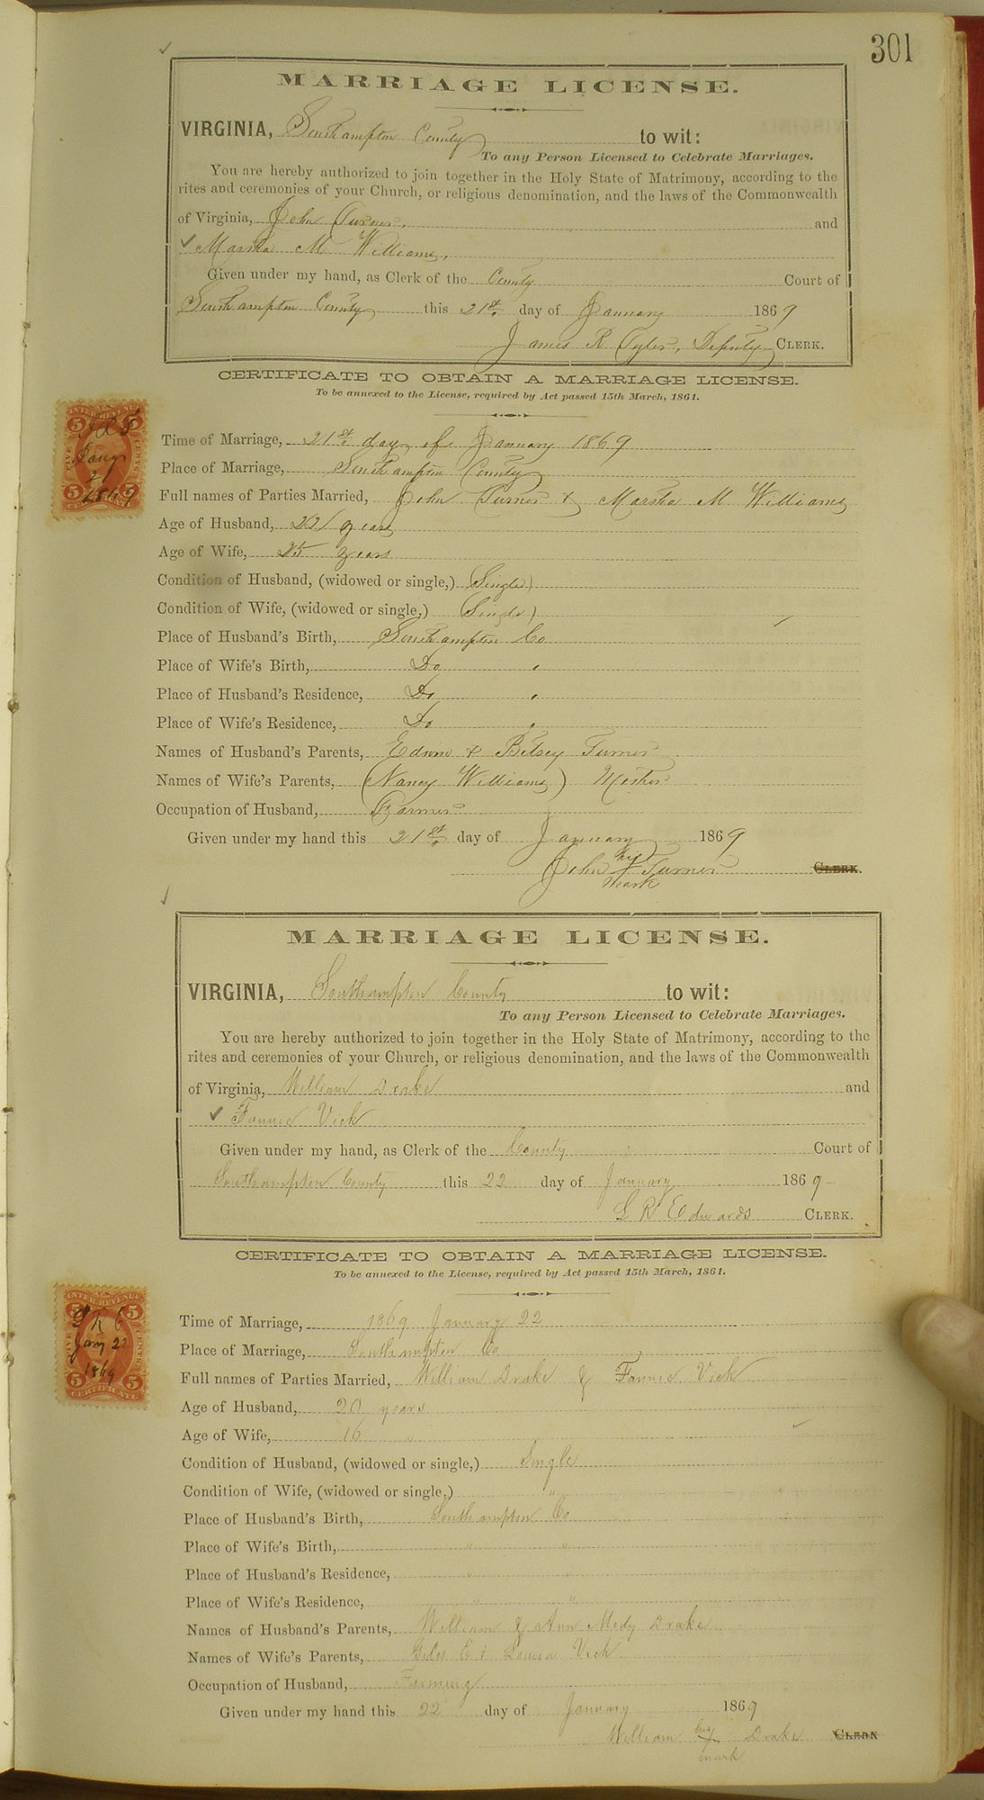 301
MARRIAGE LICENSE.
VIRGINIA, Southampton County to wit:
To any Person Licensed to Celebrate Marriages.
You are hereby authorized to join together in the Holy State of Matrimony, according to the
rites and ceremonies of your Church, or religious denomination, and the laws of the Commonwealth
of Virginia, John Turner, and
Martha M Williams,
Given under my hand, as Clerk of the County Court of
Southampton County this 21st. day of January 1869
James R Tyler, Deputy CLERK.
CERTIFICATE TO OBTAIN A MARRIAGE LICENSE.
To be annexed to the License, required by Act passed 15th March, 1861.
Time of Marriage, 21st day of January 1869
Place of Marriage, Southampton County
Full names of Parties Married, John Turner & Martha M Williams
Age of Husband, years
Age of Wife, 25 years
Condition of Husband, (widowed or single,) Single
Condition of Wife, (widowed or single,) Single
Place of Husband's Birth, Southampton Co
Place of Wife's Birth, Do
Place of Husband's Residence, Do
Place of Wife's Residence, Do
Names of Husband's Parents, & Betsey Turner
Names of Wife's Parents, (Nancy Williams) Mother
Occupation of Husband, Farmer
Given under my hand this 21st. day of January 1869
his
John + Turner CLERK.
mark
MARRIAGE LICENSE.
VIRGINIA, Southampton County to wit:
To any Person Licensed to Celebrate Marriages.
You are hereby authorized to join together in the Holy State of Matrimony, according to the
rites and ceremonies of your Church, or religious denomination, and the laws of the Commonwealth
of Virginia, William Drake and
Fannie Vick
Given under my hand, as Clerk of the County Court of
Southampton County this 22 day of January 1869
L R Edwards CLERK.
CERTIFICATE TO OBTAIN A MARRIAGE LICENSE.
To be annexed to the License, required by Act passed 15th March, 1861.
L R E
Jany 22
1869
Time of Marriage, 1869 January 22
Place of Marriage, Southampton Co
Full names of Parties Married, William Drake & Fannie Vick
Age of Husband, 20 years
Age of Wife, 16 "
Condition of Husband, (widowed or single,) Single
Condition of Wife, (widowed or single,) "
Place of Husband's Birth, Southampton Co
Place of Wife's Birth, " "
Place of Husband's Residence, " "
Place of Wife's Residence, " "
Names of Husband's Parents, William & Ann Drake
Names of Wife's Parents, Giles E & Louisa Vick
Occupation of Husband, Farming
Given under my hand this 22 day of January 1869
his
William + Drake CLERK
mark